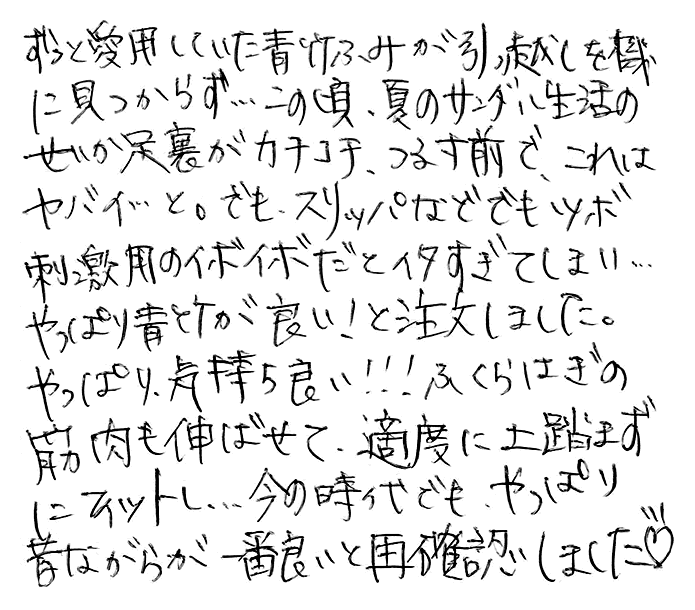 ずっと愛用していた青竹ふみが引っ越しを機
に見つからず…この頃、夏のサンダル生活の
せいか足裏がカチコチ、つるす前で、これは
ヤバイ…と。でも、スリッパなどでもツボ
刺激用のイボイボだとイタすぎてしまい…
やっぱり青竹が良い!と注文しました。
やっぱり、気持ち良い!!!ふくらはぎの
筋肉も伸ばせて、適度に土踏まず
にフィットし…今の時代でも、やっぱり
昔ながらが一番良いと再確認しました♡